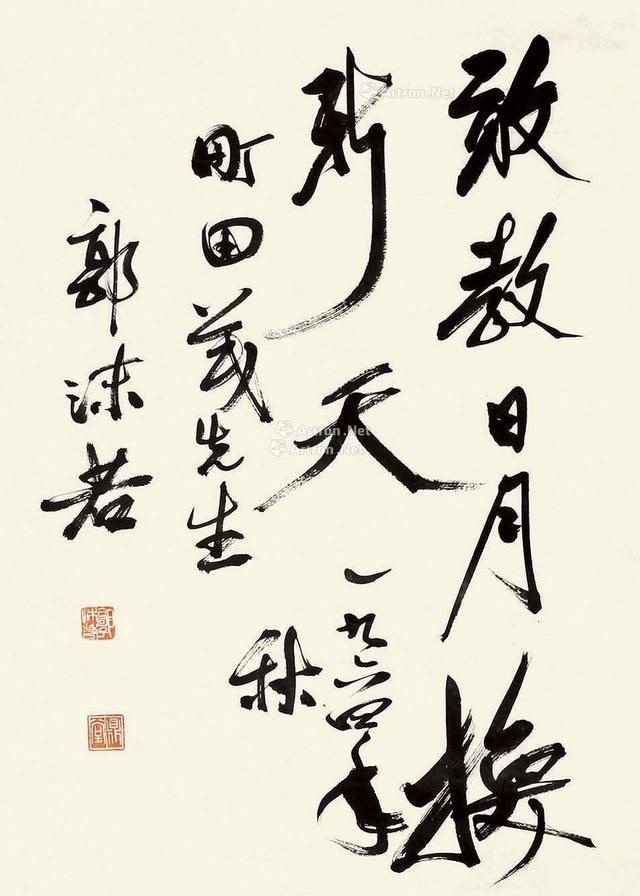 敢教日月换
新天
一九六四年
秋
町田茂先生
郭沫若
Artron.Net
Artron.Net
Artron.Net